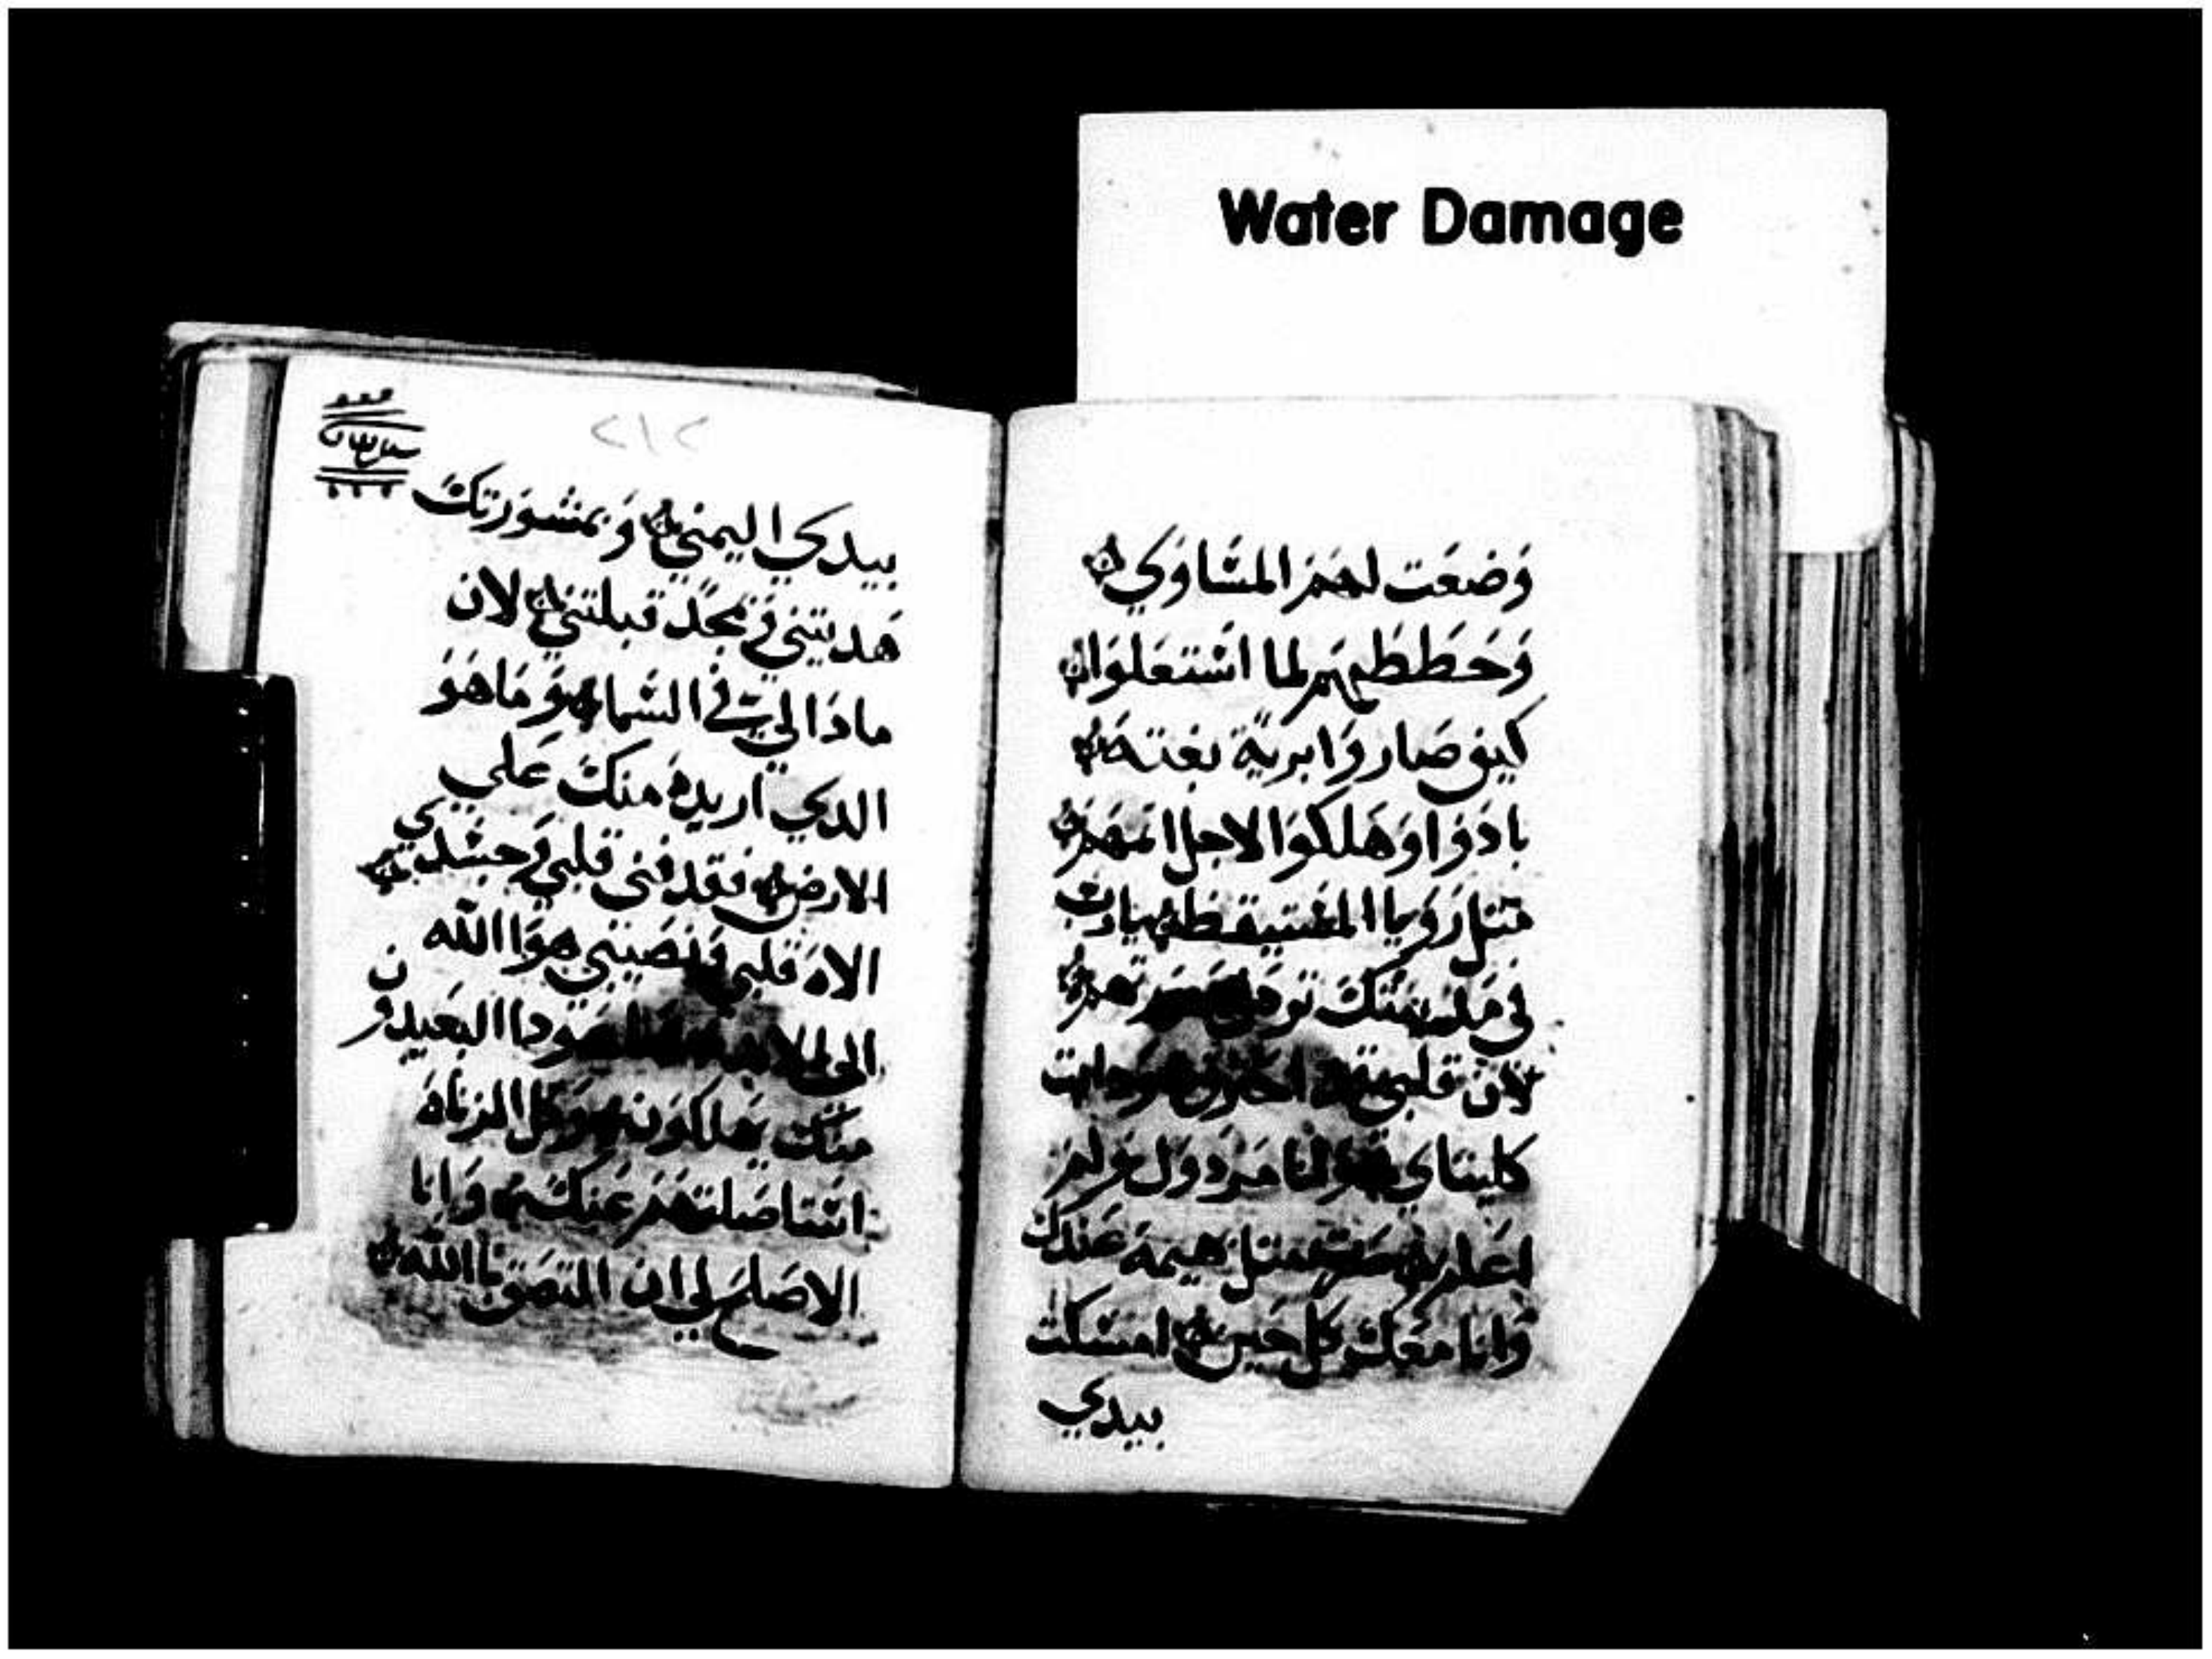 Water Damage
وَضعَت لهم المسَاوَي
وَحَططتهم لما استعَلوَا
كيف صَاروَا برية بغتة
بادوَا وَهَلكوَا الاجل اثمهم
مثل رَوَيا المستيقظ يارب
في مدينتكَ
لان قلبي احترق وَدابت
كليتاي وَانا مردوَل وَلم
اعلم صرت مثل بهيمة عندك
وَانا معَك كل حين امسكت
بيدي
٢١٢
بيدي اليمني وَبمشوَرتكَ
هَديتني وَبمجَد قبلتني لان
ماذَا لي في السَما وَمَا هَوَ
الدي اريده منكَ عَلي
الارض فقد فني قلبي وَجسَدي
الاه قلبي وَنصيبي هوَ الله
الي هوَدا البعيدون
منكَ يهلكوَن وَكل الزناه
استاصَلتهَم عَنكَ وَانا
الاصَلح لي ان التصَق بالله